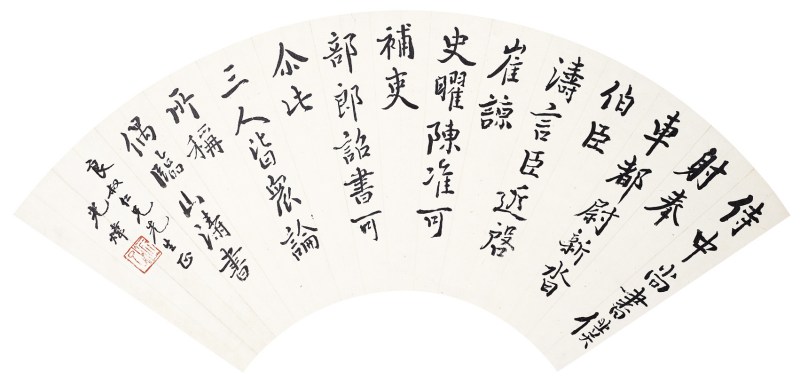 侍中尚書僕
射奉
車都尉新沓
伯臣
濤言臣近啓
崔諒
史曜陳准可
補吏
部郎詔書可
尒此
三人皆衆論
所稱山濤書
偶臨
良叔仁兄先生正
光煒